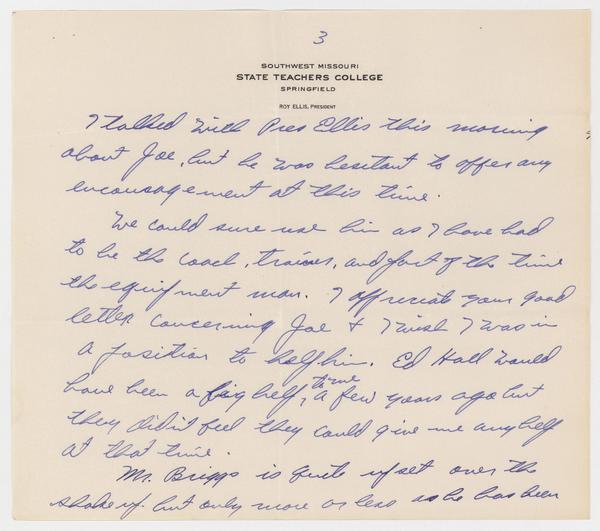 3
SOUTHWEST MISSOURI
STATE TEACHERS COLLEGE
SPRINGFIELD
ROY ELLIS, PRESIDENT
I talked with Pres Ellis this morning
about Joe, but he was hesitant to offer any
encouragement at this time.
We could sure use him as I have had
to be the coach, trainer, and part of the time
the equipment man. I appreciate your good
letter concerning Joe & I wish I was in
a position to help him. Ed Hall would
have been a big help, time
a few years ago but
they didn't feel they could give me any help
at that time.
Mr. Briggs is quite upset over the
shake up. but only more or less as he has been